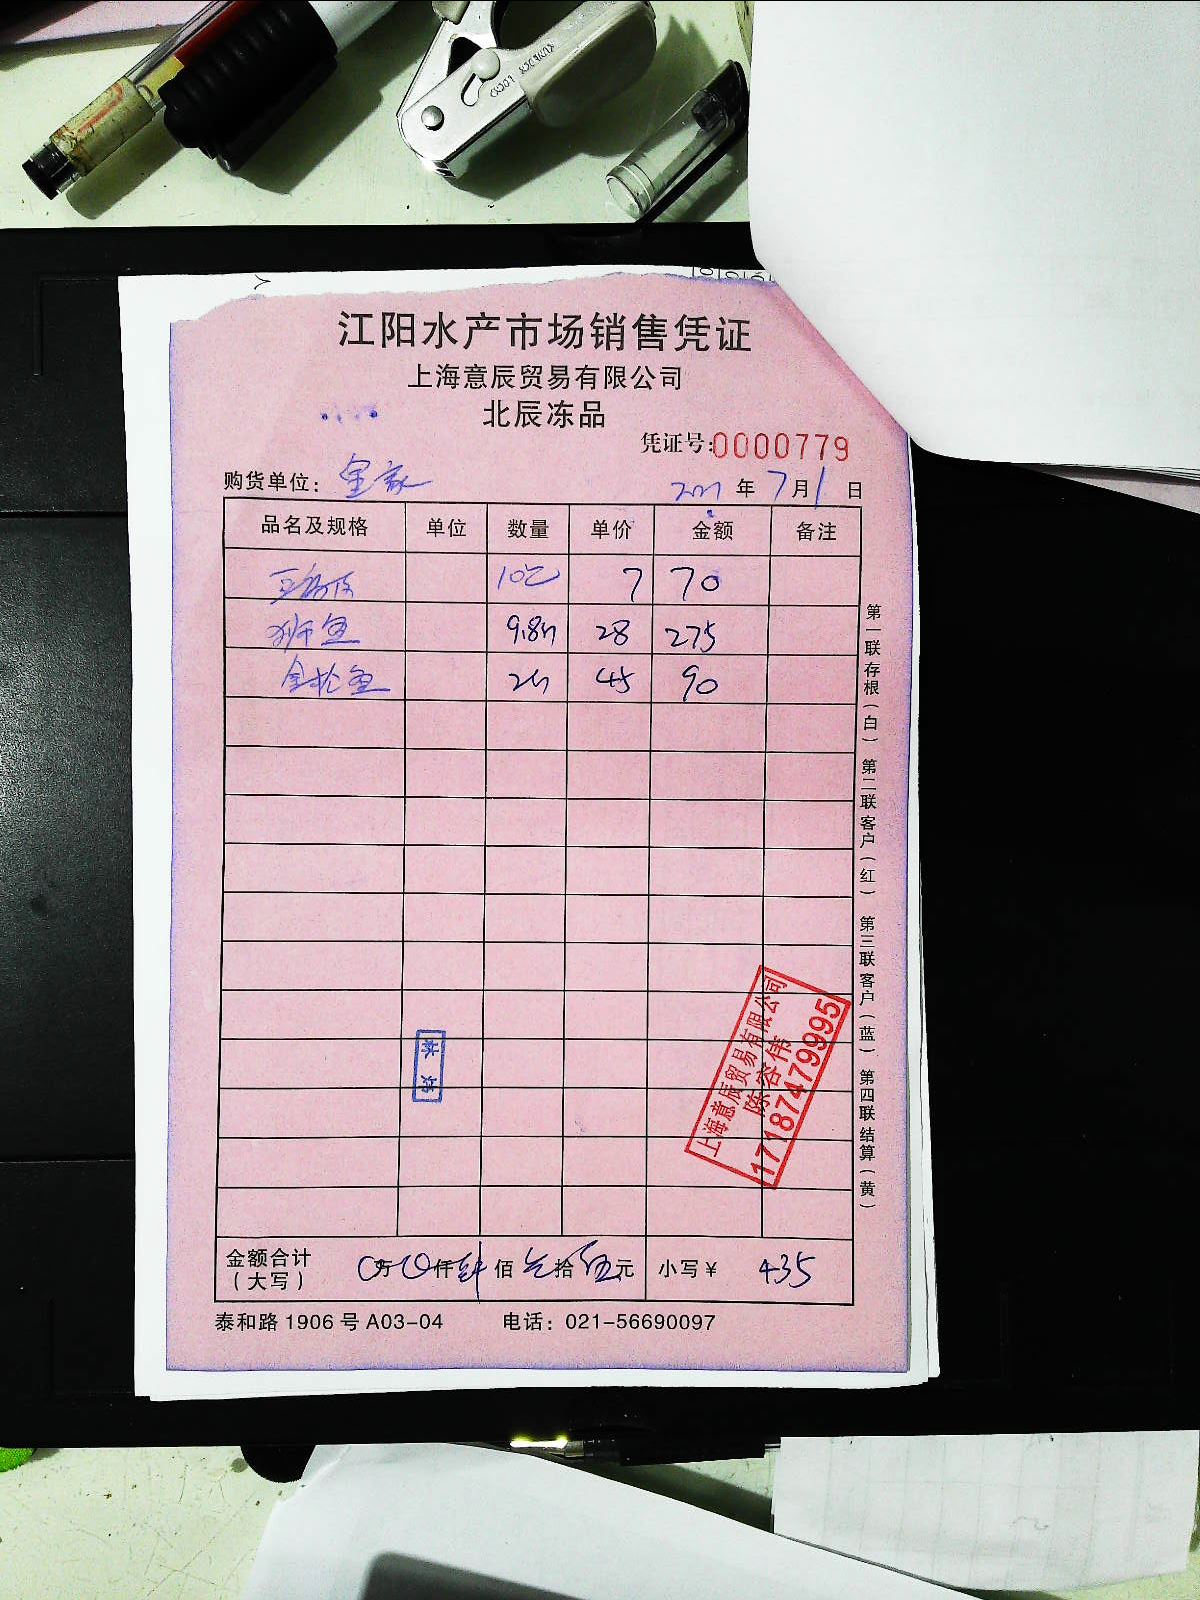 江阳水产市场销售凭证
上海意辰贸易有限公司
北辰冻品
凭证号:0000779
购货单位: 年 7月1日
品名及规格 单位 数量 单价 金额 备注
7 70
狮鱼 9.8 28 275
鱼 2 45 90
第一联存根(白) 第二联客户(红) 第三联客户(蓝) 第四联结算(黄)
上海意辰贸易有限公司
陈容伟
17187479995
金额合计 万 仟 佰 拾 伍元 小写¥ 435
(大写)
泰和路1906号A03-04 电话: 021-56690097